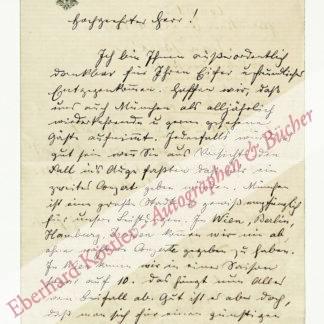 Hochgeehrter Herr!
Ich bin Ihnen außerordentlich
dankbar für Ihren Eifer u. freundliches
Entgegenkommen. Hoffen wir, daß
uns auch München als alljährlich
wiederkehrende u. gern gesehene
Gäste aufnimmt. Jedenfalls wird
gut sein wenn Sie aus Vorsicht den
Fall ins Auge faßten daß wir ein
zweites Conzert geben. München
ist eine große Stadt u. gewiß empfänglich
für unsere Leistungen. In Wien, Berlin
Hamburg, wir nie ab
ohne Conzerte gegeben zu haben.
In wir in einer Saison
auf 10. das hängt nun Alles
vom Beifall ab. Gut ist es aber doch,
daß man sich für einen günstigen
Eberhard Köstler, Autographen & Bücher